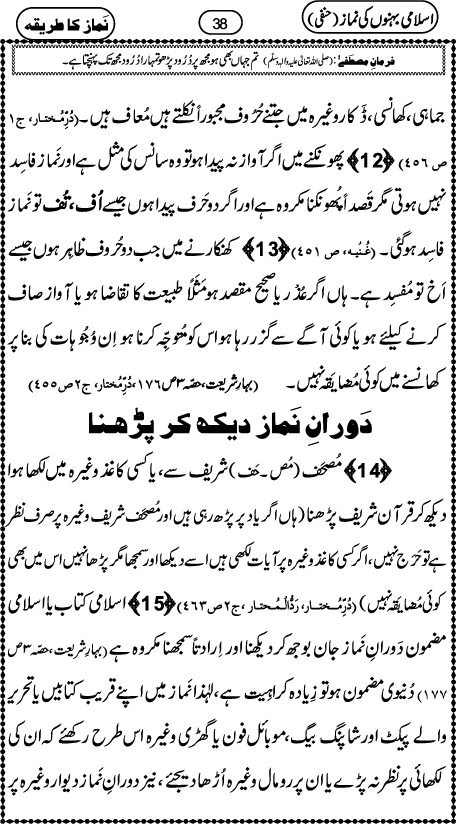 اسلامی بہنوں کی نماز (حنفی)
38
نَماز کا طریقہ
فرمانِ مصطَفٰے: (صلی اللہ تعالیٰ علیہ واٰلہٖ وسلّم) تم جہاں بھی ہو مجھ پر دُرُود پڑھو تمہارا دُرُود مجھ تک پہنچتا ہے۔
جماہی، کھانسی، ڈَکار وغیرہ میں جتنے حُرُوف مجبوراً نکلتے ہیں مُعاف ہیں۔ (دُرِّمُختار، ج۱
ص ۴۵۶) ﴿12﴾ پھونکنے میں اگر آواز نہ پیدا ہو تو وہ سانس کی مثل ہے اور نَماز فاسِد
نہیں ہوتی مگر قَصداً پُھونکنا مکروہ ہے اور اگر دو حَرف پیدا ہوں جیسے اُف، تُف تو نَماز
فاسِد ہوگئی۔ (غُنْیہ، ص ۴۵۱) ﴿13﴾ کھنکارنے میں جب دو حُروف ظاہِر ہوں جیسے
اَخْ تو مُفسِد ہے۔ ہاں اگر عُذْر یا صحیح مقصد ہو مَثَلاً طبیعت کا تقاضا ہو یا آواز صاف
کرنے کیلئے ہو یا کوئی آگے سے گزر رہا ہو اس کو مُتوجِّہ کرنا ہو اِن وُجُوہات کی بنا پر
کھانسنے میں کوئی مُضایَقہ نہیں۔ (بہارِ شریعت، حصّہ ۳ ص ۱۷۶، دُرِّمُختار، ج۲ ص ۴۵۵)
دَورانِ نَماز دیکھ کر پڑھنا
﴿14﴾ مُصحَف (مُص۔حَف) شریف سے، یا کسی کاغذ وغیرہ میں لکھا ہوا
دیکھ کر قرآن شریف پڑھنا (ہاں اگر یاد پر پڑھ رہی ہیں اور مُصحَف شریف وغیرہ پر صرف نظر
ہے تو حَرَج نہیں، اگر کسی کاغذ وغیرہ پر آیات لکھی ہیں اسے دیکھا اور سمجھا مگر پڑھا نہیں اس میں بھی
کوئی مُضایَقہ نہیں) (دُرِّمُختار، رَدُّالْمُحتار، ج۲ ص ۴۶۳) ﴿15﴾ اسلامی کتاب یا اسلامی
مضمون دَورانِ نَماز جان بوجھ کر دیکھنا اور اِرادتاً سمجھنا مکروہ ہے (بہارِ شریعت، حصّہ ۳ ص
۱۷۷) دُنیوی مضمون ہو تو زِیادہ کراہیت ہے، لہٰذا نَماز میں اپنے قریب کتابیں یا تحریر
والے پیکٹ اور شاپنگ بیگ، موبائل فون یا گھڑی وغیرہ اس طرح رکھئے کہ ان کی
لکھائی پر نظر نہ پڑے یا ان پر رومال وغیرہ اُڑھا دیجئے، نیز دورانِ نَماز دیوار وغیرہ پر